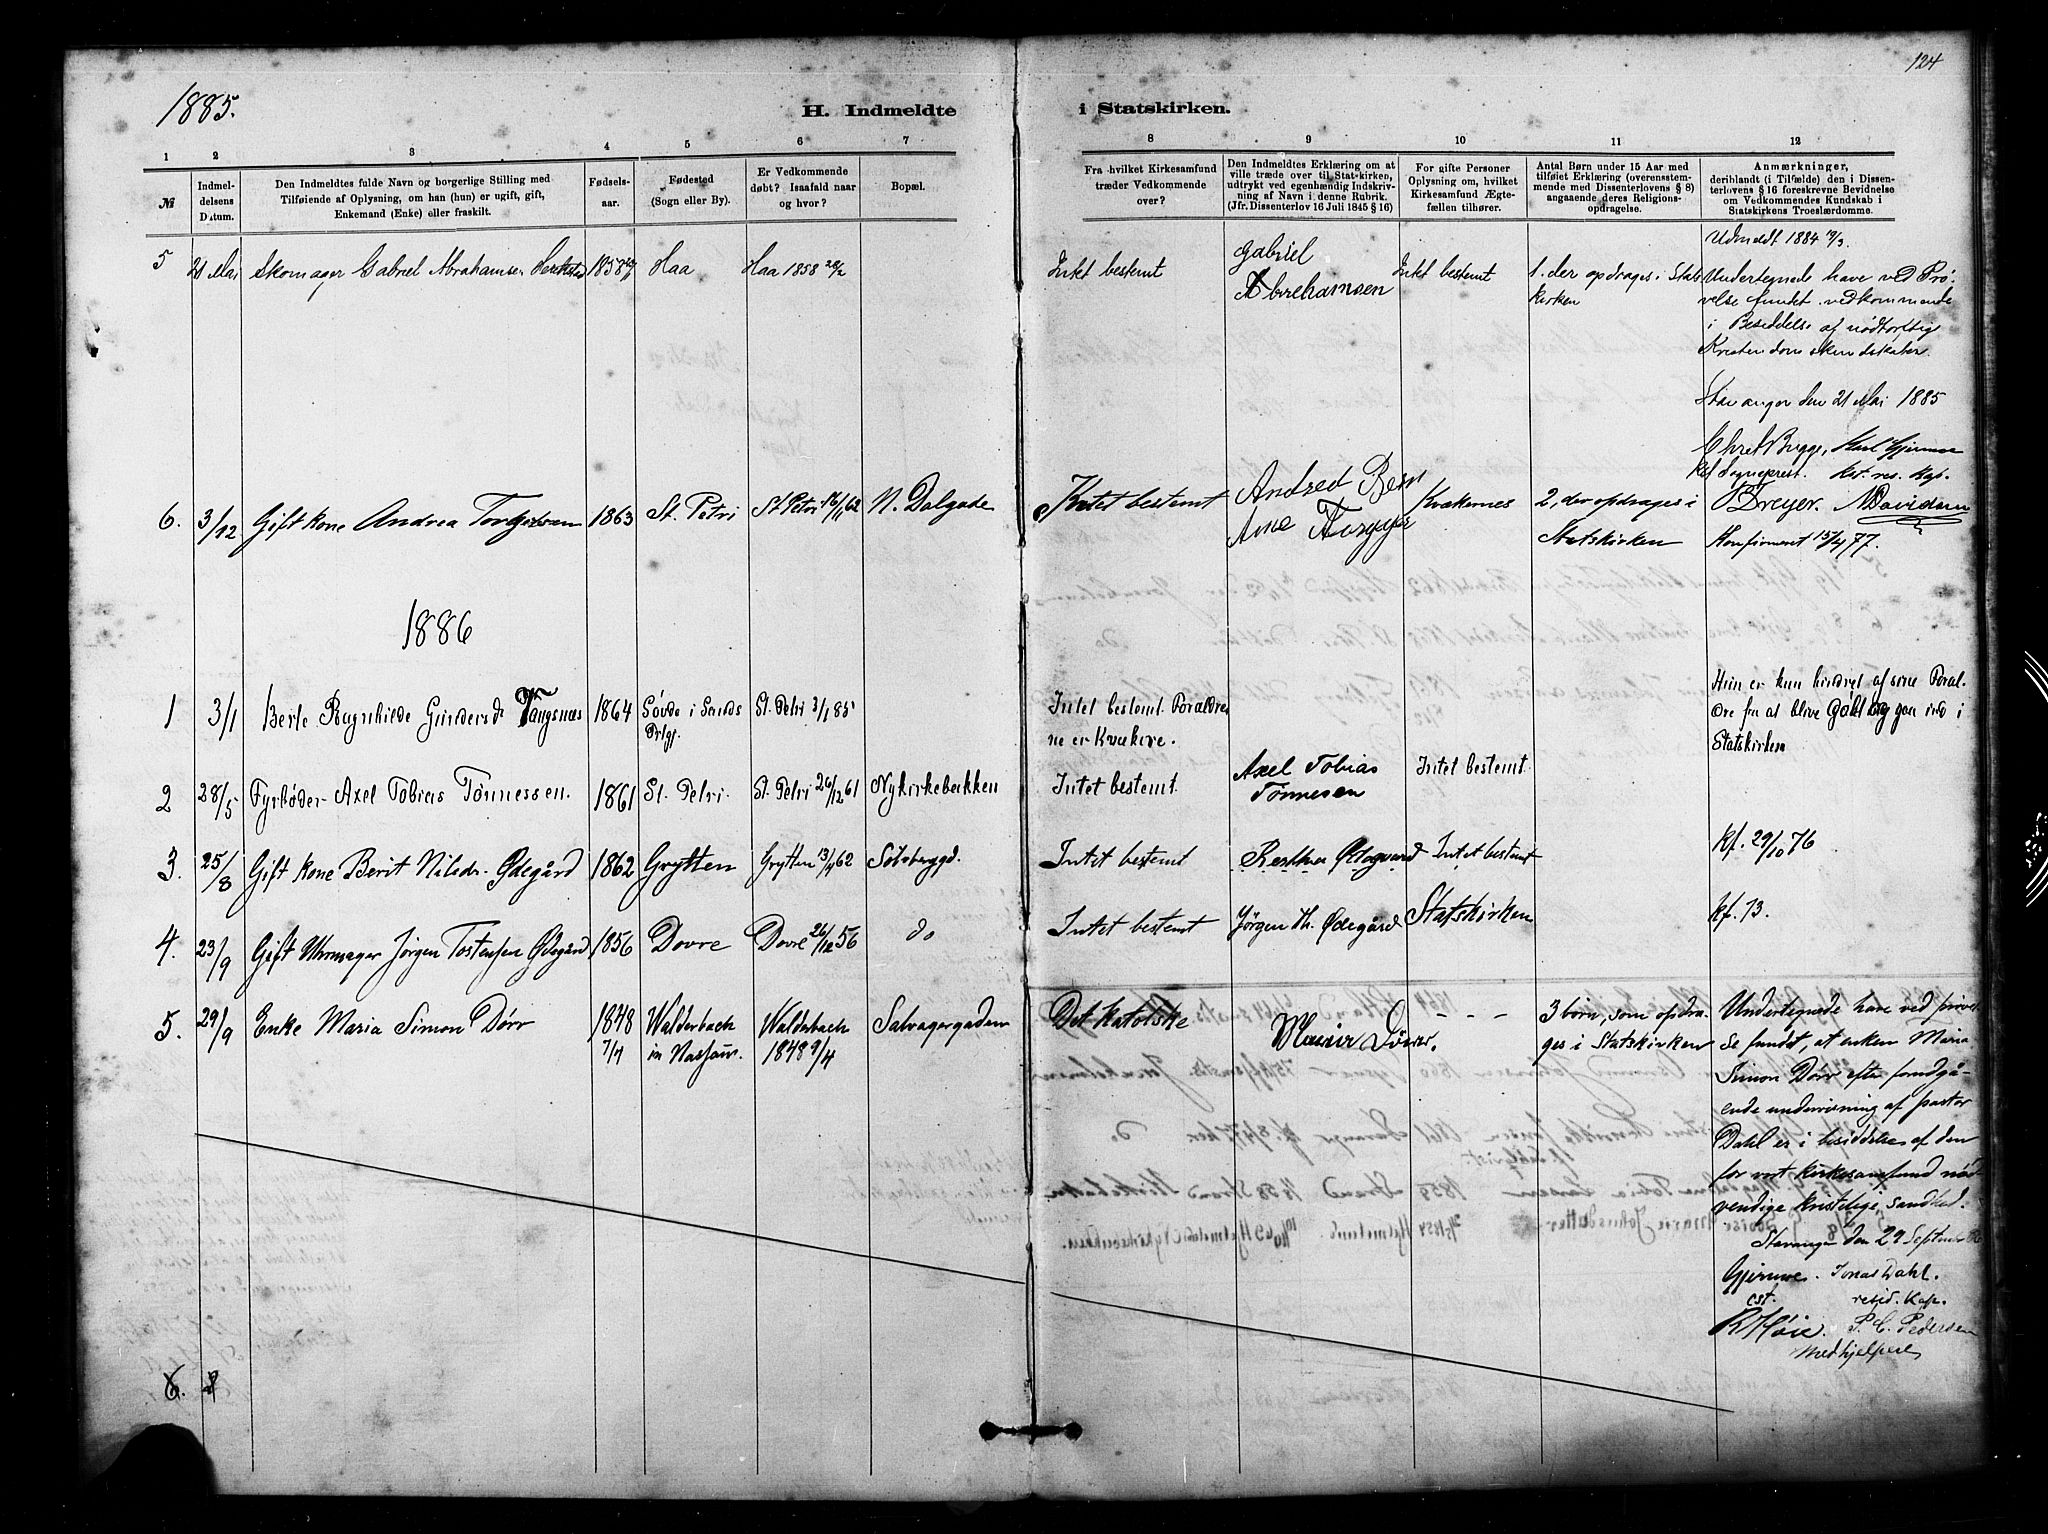 124
1885.
H. Indmeldte i Statskirken.
1 2 3 4 5 6 7 8 9 10 11 12
№
Indmel-
delsens
Datum.
Den Indmeldtes fulde Navn og borgerlige Stilling med
Tilføiende af Oplysning, om han (hun) er ugift, gift,
Enkemand (Enke) eller fraskilt.
Fødsels-
aar.
Fødested
(Sogn eller By).
Er Vedkommende
døbt? Isaafald naar
og hvor?
Bopæl.
Fra hvilket Kirkesamfund
træder Vedkommende
over?
Den Indmeldtes Erklæring om at
ville træde over til Stat-kirken,
udtrykt ved egenhændig Indskriv-
ning af Navn i denne Rubrik.
(Jfr. Dissenterlov 16 Juli 1845 § 16)
For gifte Personer
Oplysning om, hvilket
Kirkesamfund Ægte-
fællen tilhører.
Antal Børn under 15 Aar med
tilføiet Erklæring (overensstem-
mende med Dissenterlovens § 8)
angaaende deres Religions-
opdragelse.
Anmærkninger,
deriblandt (i Tilfælde) den i Dissen-
terlovens § 16 foreskrevne Bevidnelse
om Vedkommendes Kundskab i
Statskirkens Troeslærdomme.
5 21 Mai Skomager Gabriel Abrahamsen 1858 Haa Haa 1858
Intet bestemt
Gabriel
Abrehamsen
Intet bestemt
1. der opdrages i Stats
kirken
Udmeldt 1884
Undertegnede have ved Prø-
velse fundet vedkommende
i Besiddelse af nødtørftig
Kristendomskundskaber.
Stavanger den 21 Mai 1885
Chr. Bugge, Karl Gjerume
Sogneprest. res. Kap.
O Dreyer. N Davidsen
6. 3/12 Gift kone Andrea 1863 St. Petri St Petri 16/11 62 N. Dalgade
Intet bestemt
Kvækernes
2, der opdrages i
Statskirken
Konfirmeret 15/4 77.
1886
1 3/1 Berte Ragnhilde Gundersd Vangsnes 1864 Søvde i Sands
Prtgj.
St. Petri 3/1 85
Intet bestemt Foraldre
ne er Kvækere.
Hun er kun hindret af sine Foral-
dre fra at blive døbt og gaa ind i
Statskirken
2 28/5 Fyrbøder Axel Tobias Tønnessen. 1861 St. Petri. St. Petri 26/12 61 Nykirkebakken
Intet bestemt
Axel Tobias
Tønnesen
Intet bestemt
3. 25/8 Gift kone Berit Nilsdr. Ødegård 1862 Grytten Grytten 13/4 62 Sølvberggd.
Intet bestemt
Ødegaard
Intet bestemt
kf. 29/10 76
4. 23/9 Gift Uhrmager Jørgen Tostensen Ødegård 1856 Dovre Dovre 26/12 56 do
Intet bestemt
Jørgen Th. Ødegård
Statskirken
kf. 73.
5. 29/9 Enke Maria Simon Dörr 1848
7/4
Walderbach
in Nassau
Walderbach
1848 9/4
Salvagergaden
Det katolske
Dörr.
- - -
3 børn, som opdra-
ges i Statskirken
Undertegnede have ved prøvel
se fundet, at enken Maria
Simon Dörr efter forudgå-
ende undervisning af pastor
Dahl er i besiddelse af den
for vort kirkesamfund nød
vendige kristelige sandhed.
Stavanger den 29 September
Gjerume. Jonas Dahl.
cst. resid. Kap.
R Høie. P. C. Pedersen
Medhjelpere
6.